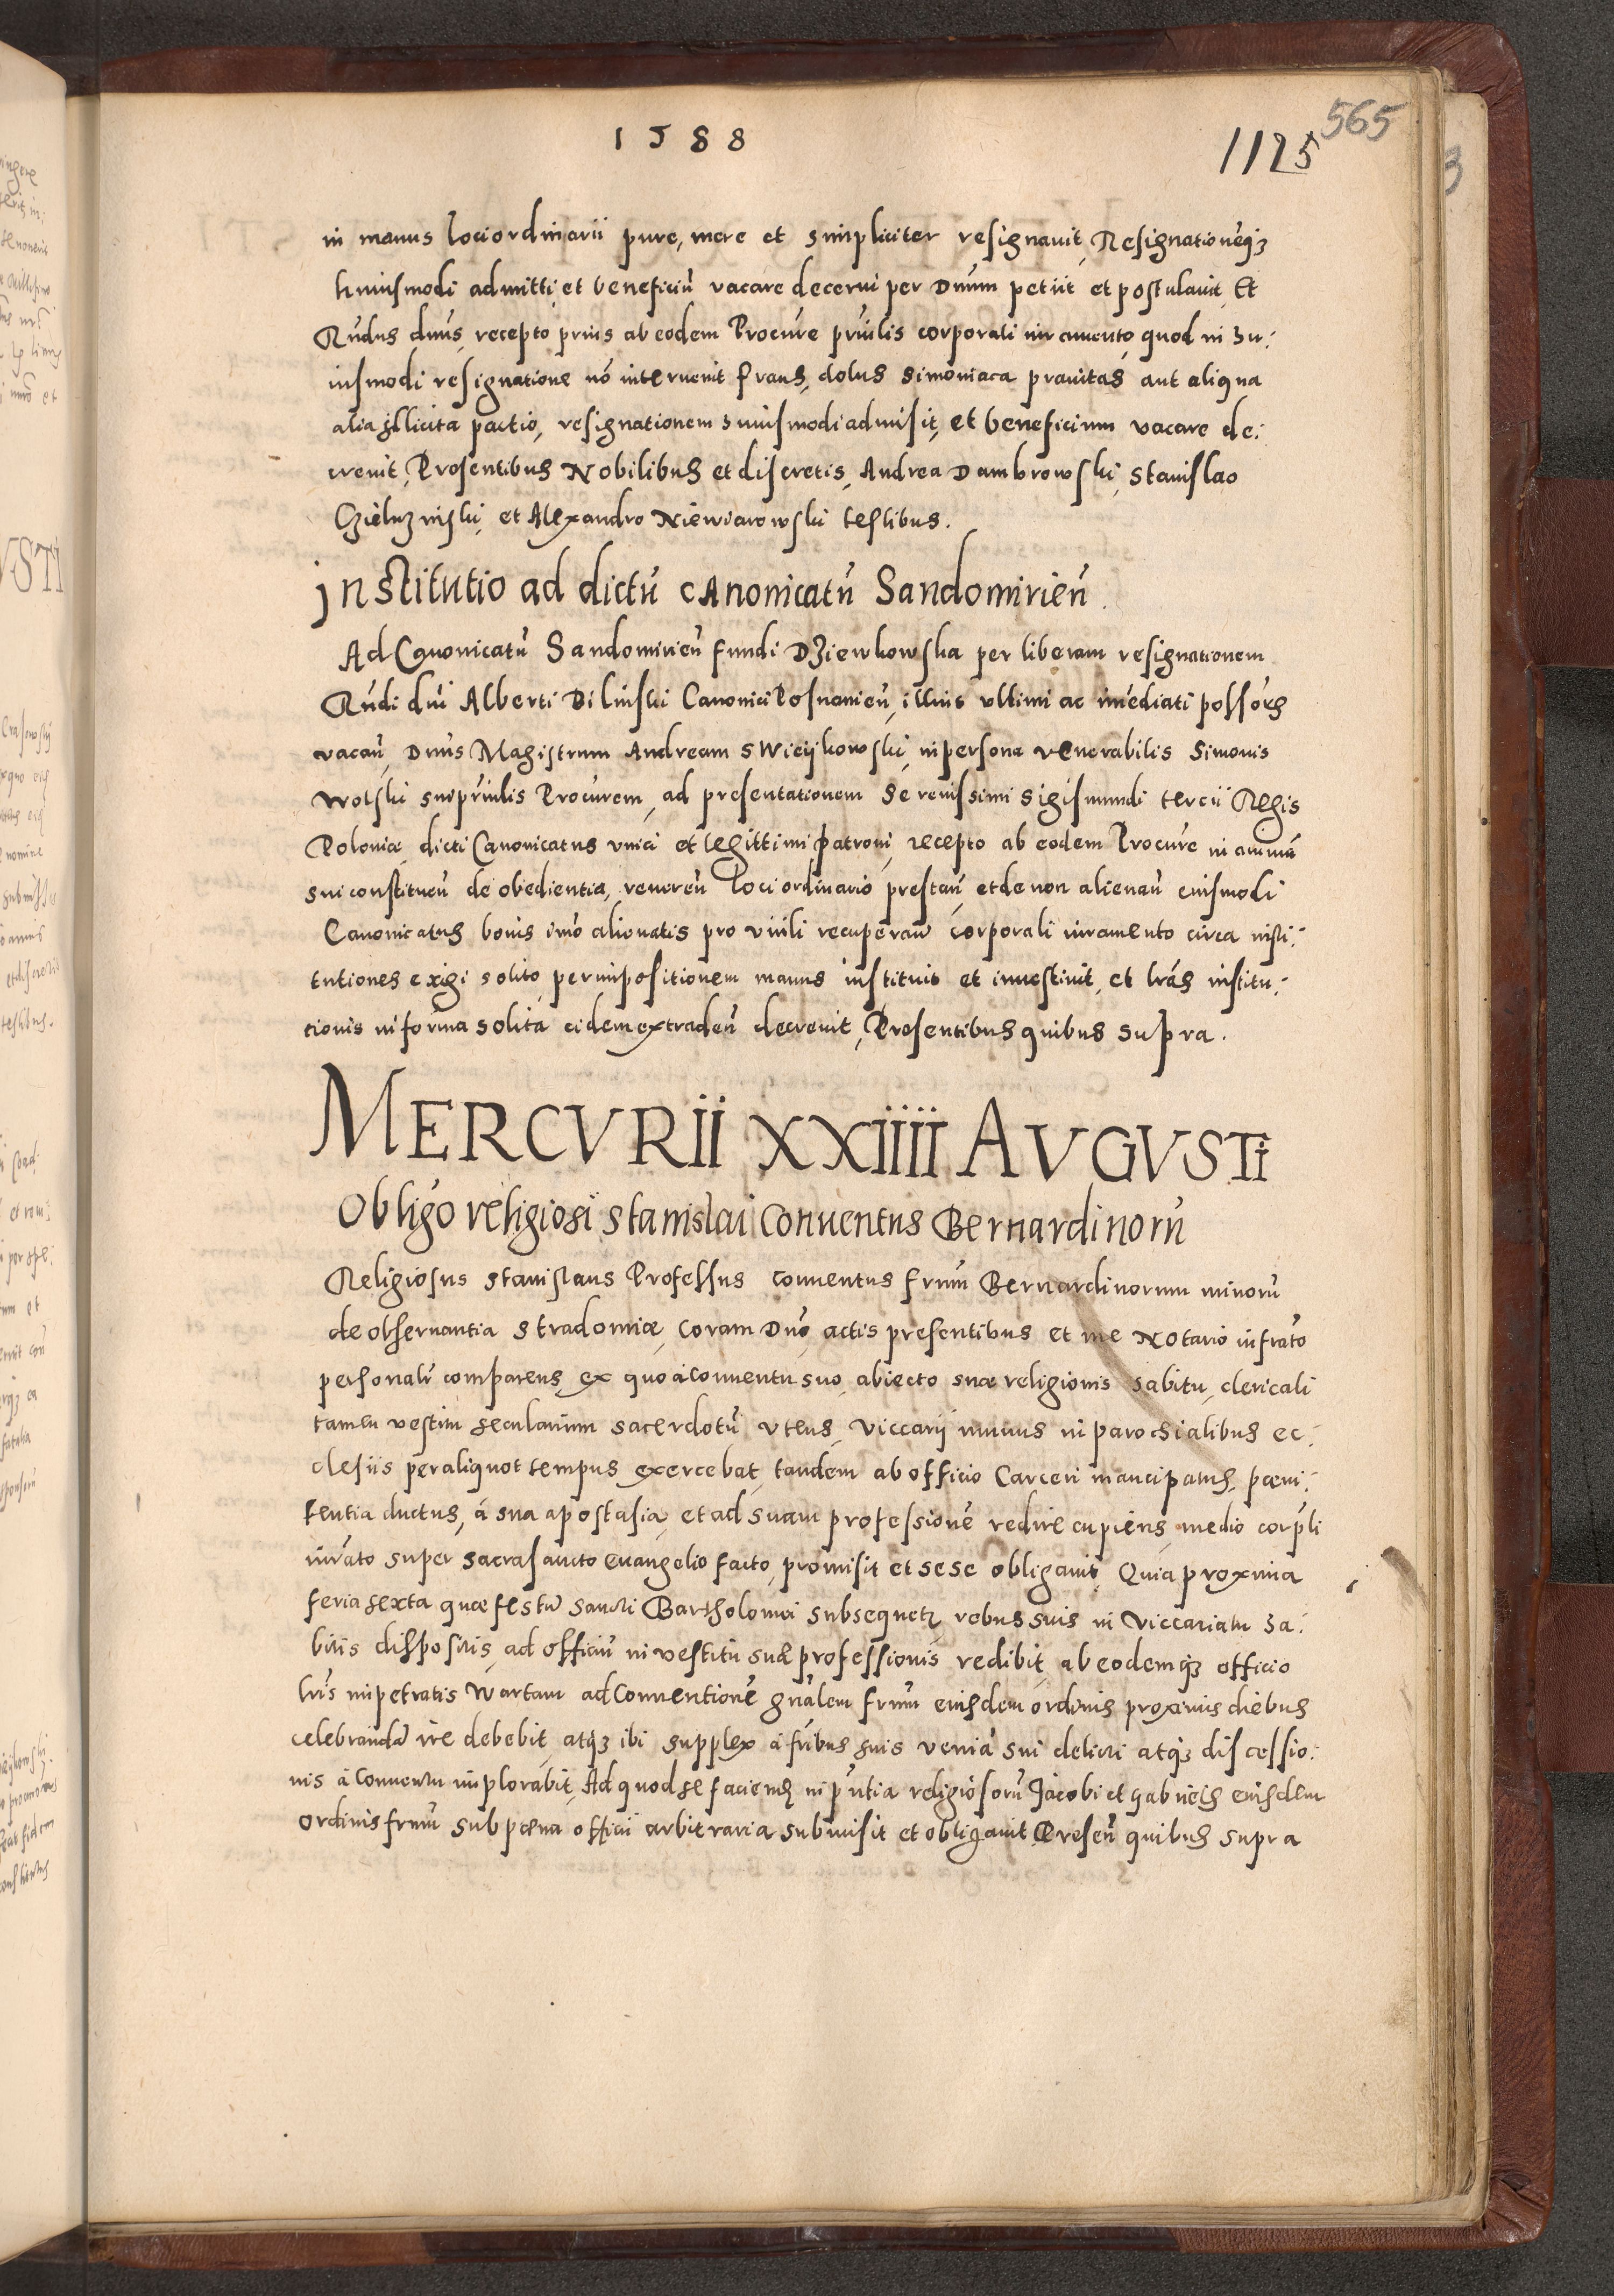 1588
565
1125
in manus loci ordinarii pure, mere et simpliciter resignavit, Resignationēq3
huiusmodi admitti, et beneficiū vacare decerni per Dnum petiit et postulavit, Et
Rndus dnus, recepto prius ab eodem Procure prinlis corporali iuramento, quod in hu:
iusmodi resignatione nō intervenit fraus, dolus simoniaca pravitas aut aliqua
alia illicita pactio, resignationem huiusmodi admisit, et beneficium vacare de:
crevit, Presentibus Nobilibus et discretis, Andrea Dambrowski, Stanislao
et Alexandro Niewiarowski testibus.
Institutio ad dictū cAnonicatū Sandomirieñ
Ad Canonicatū Sandomirieñ fundi Dziewkowska per liberam resignationem
Rndi dni Alberti Bilinski Canonici Posnanieñ, illius ultimi ac imediati possoris
vacañ, Dnus Magistrum Andream Swieijkowski, in persona venerabilis Simonis
Wolski sui prinlis Procurem, ad presentationem Serenissimi Sigismundi tercii Regis
Poloniæ, dicti Canonicatus unici et legittimi patroni, recepto ab eodem Procure in animā
sui constitueñ de obedientia, revereñ loci ordinario prestañ, et de non alienañ eiusmodi
Canonicatus bonis imò alienatis pro virili recuperañ corporali iuramento circa insti:
tutiones exigi solito, per impositionem manus instituit et investivit, et lras institu:
tionis in forma solita eidem extradeñ decrevit, Presentibus quibus supra.
MERCVRII XXIIII AVGVSTI
Obligo religiosi Stanislai Conventus Bernardinorū
Religiosus Stanislaus Professus conventus frum Bernardinorum minorū
de observantia Stradomiæ, coram Dno, actis presentibus et me Notario infrato
personalr comparens, ex quo à conventu suo, abiecto suæ religionis habitu, clericali
tamen vestitu secularium sacerdotū utens, Viccarij munus in parochialibus ec:
clesiis per aliquot tempus exercebat, tandem ab officio Carceri mancipatus, pœni:
tentia ductus, à sua apostasia, et ad suam professionē redire cupiens, medio corpli
iurato super sacrasancto evangelio facto, promisit et sese obligavit, Quia proxima
feria sexta quæ festū sancti Bartholomei subsequetr, rebus suis in Viccariatu ha:
bitis dispositis, ad officiū in vestitu suæ professionis redibit, ab eodemq3 officio
lris impetratis Wartam ad Conventionē gnalem frum eiusdem ordinis proximis diebus
celebrandā ire debebit, atq3 ibi supplex à fribus suis veniā sui delicti atq3 discessio:
nis à conventu implorabit, Ad quod se faciend in pntia religiosorū Jacobi et Gabrielis eiusdem
ordinis frum sub pœna officii arbitraria submisit et obligavit, Preseñ quibus supra